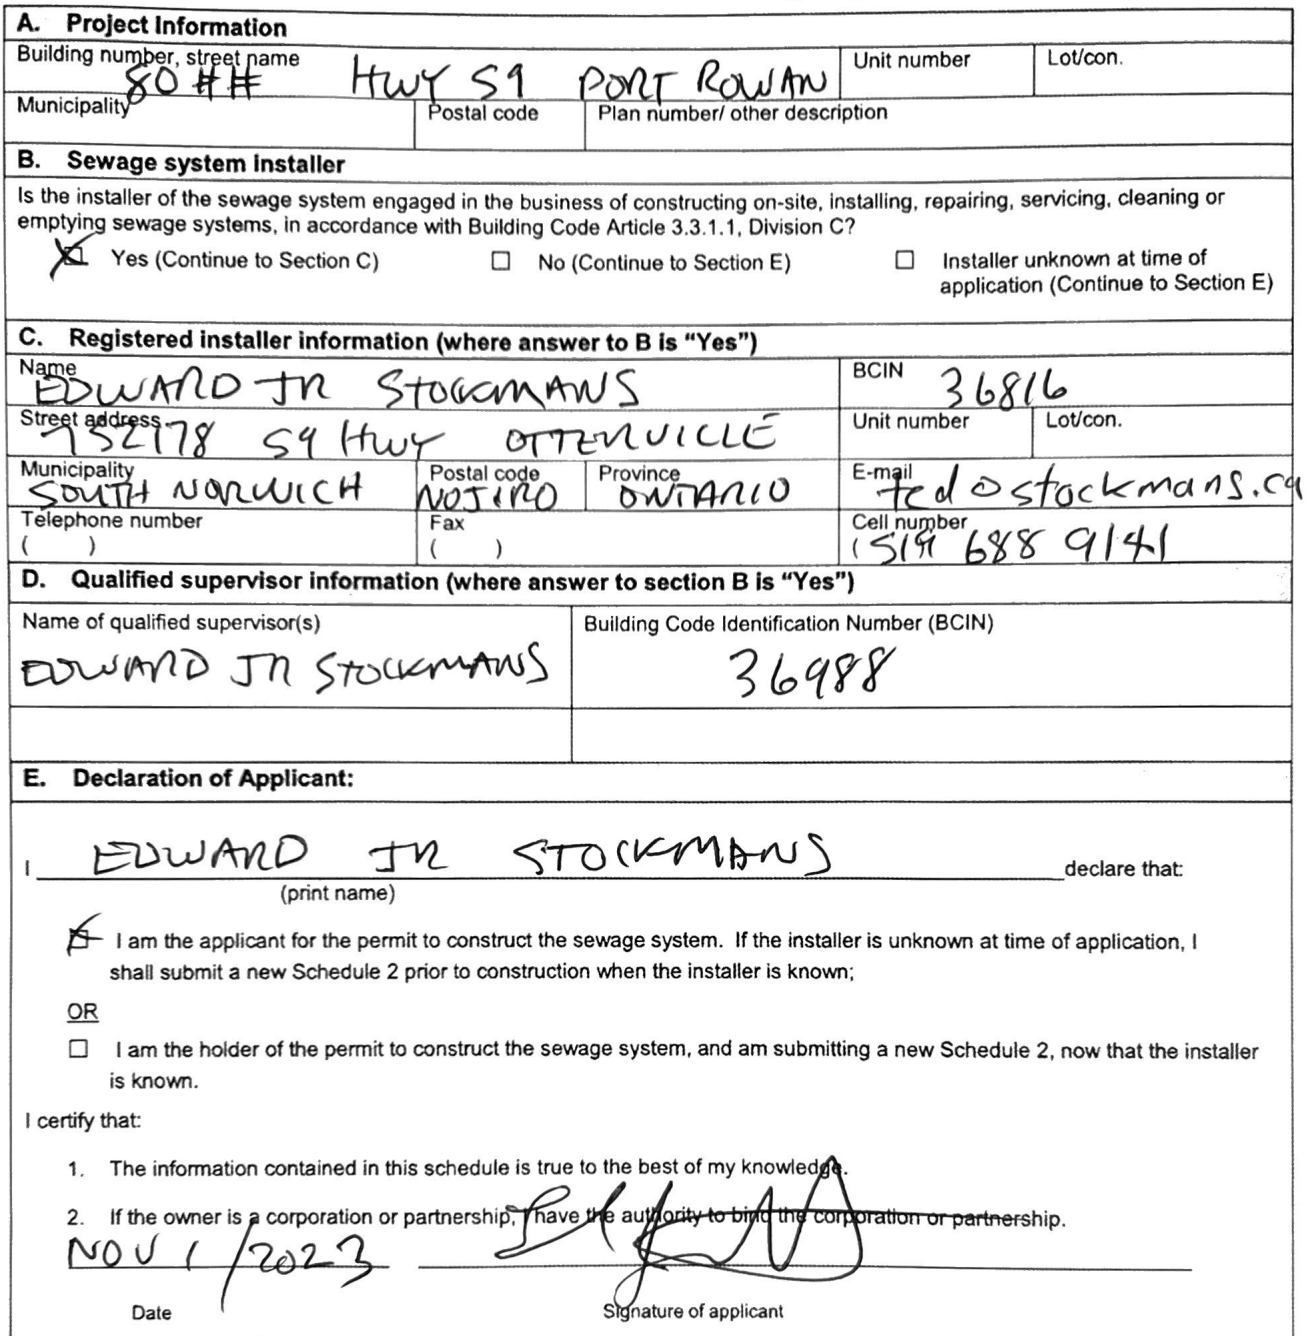 A. Project Information
Building number, street name Unit number Lot/con.
80## HWY 59 PORT ROWAN
Municipality Postal code Plan number/ other description
B. Sewage system installer
Is the installer of the sewage system engaged in the business of constructing on-site, installing, repairing, servicing, cleaning or
emptying sewage systems, in accordance with Building Code Article 3.3.1.1, Division C?
Yes (Continue to Section C) No (Continue to Section E) Installer unknown at time of
application (Continue to Section E)
C. Registered installer information (where answer to B is “Yes”)
Name BCIN
EDWARD JR STOCKMANS 36816
Street address Unit number Lot/con.
752178 59 HWY OTTERVILLE
Municipality Postal code Province E-mail
SOUTH NORWICH NOJIRO ONTARIO ted@stockmans.ca
Telephone number Fax Cell number
( ) ( ) (519 688 9141
D. Qualified supervisor information (where answer to section B is “Yes”)
Name of qualified supervisor(s) Building Code Identification Number (BCIN)
EDWARD JR STOCKMANS 36988
E. Declaration of Applicant:
I EDWARD JR STOCKMANS declare that:
(print name)
I am the applicant for the permit to construct the sewage system. If the installer is unknown at time of application, I
shall submit a new Schedule 2 prior to construction when the installer is known;
OR
I am the holder of the permit to construct the sewage system, and am submitting a new Schedule 2, now that the installer
is known.
I certify that:
1. The information contained in this schedule is true to the best of my knowledge.
2. If the owner is a corporation or partnership, I have the authority to bind the corporation or partnership.
NOV 1 / 2023
Date Signature of applicant